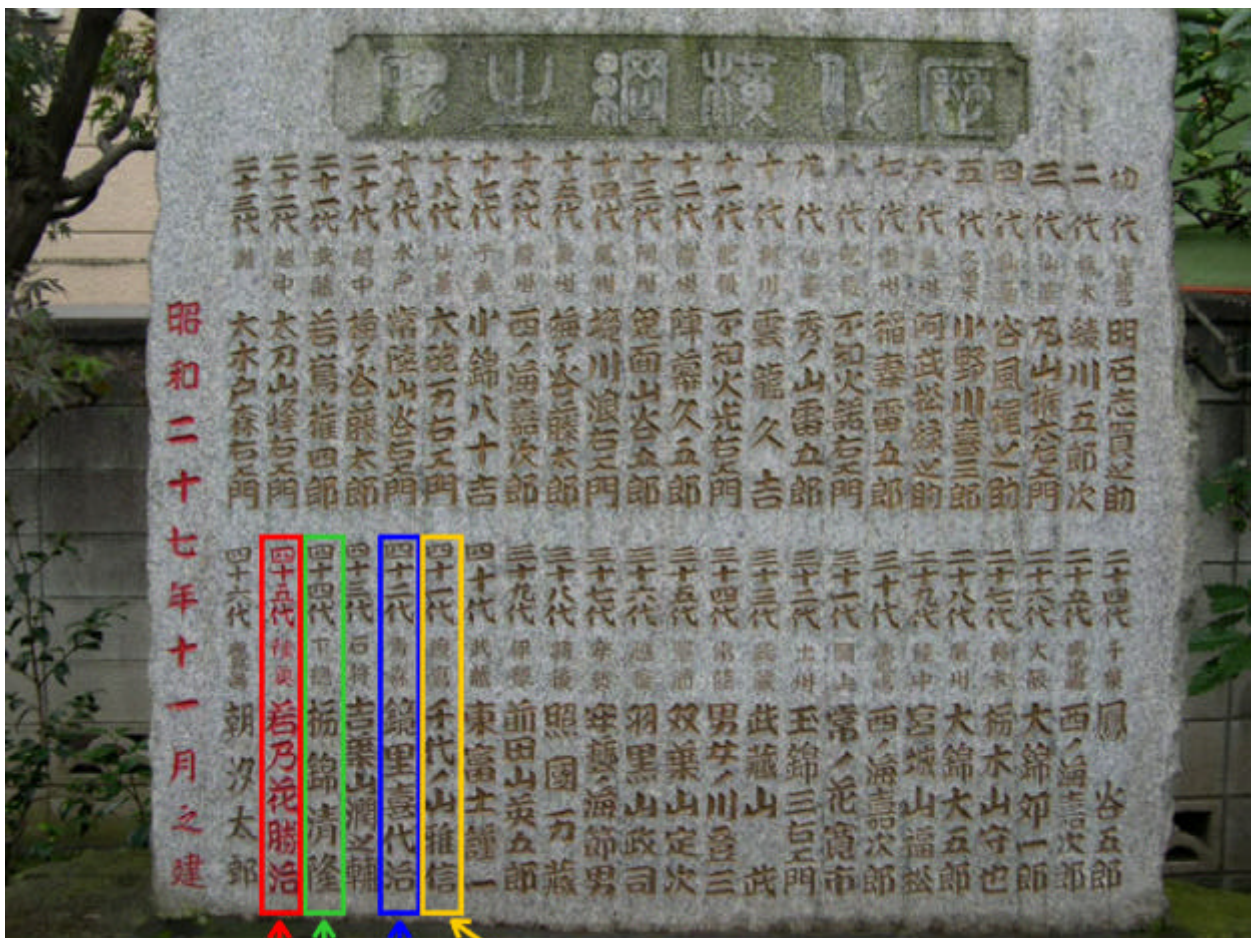 歴代横綱之碑
初代 明石志賀之助
二代 栃木 綾川五郎次
三代 仙臺 丸山権太左エ門
四代 仙臺 谷風梶之助
五代 久留米 小野川喜三郎
六代 長州 阿武松緑之助
七代 雲州 稲妻雷五郎
八代 肥後 不知火諾右エ門
九代 仙臺 秀ノ山雷五郎
十代 柳川 雲龍久吉
十一代 肥後 不知火光右エ門
十二代 陣幕久五郎
十三代 鬼面山谷五郎
十四代 境川浪右エ門
十五代 梅ヶ谷藤太郎
十六代 薩州 西ノ海嘉次郎
十七代 千葉 小錦八十吉
十八代 大砲万右エ門
十九代 水戸 常陸山谷右エ門
二十代 越中 梅ヶ谷藤太郎
二十一代 武蔵 若嶌権四郎
二十二代 越中 太刀山峰右エ門
二十三代 灘 大木戸森右エ門
二十四代 千葉 鳳谷五郎
二十五代 西ノ海嘉次郎
二十六代 大阪 大錦卯一郎
二十七代 栃木 栃木山守也
二十八代 尾州 大錦大五郎
二十九代 備中 宮城山福松
三十代 西ノ海嘉次郎
三十一代 岡山 常ノ花寛市
三十二代 土州 玉錦三右エ門
三十三代 武蔵山武
三十四代 男女ノ川登三
三十五代 双葉山定次
三十六代 羽黒山政司
三十七代 安藝ノ海節男
三十八代 照國万蔵
三十九代 伊豫 前田山英五郎
四十代 武蔵 東富士謹一
四十一代 千代ノ山雅信
四十二代 青森 鏡里喜代治
四十三代 石狩 吉葉山潤之輔
四十四代 下總 栃錦清隆
四十五代 陸奥 若乃花勝治
四十六代 朝汐太郎
昭和二十七年十一月之建